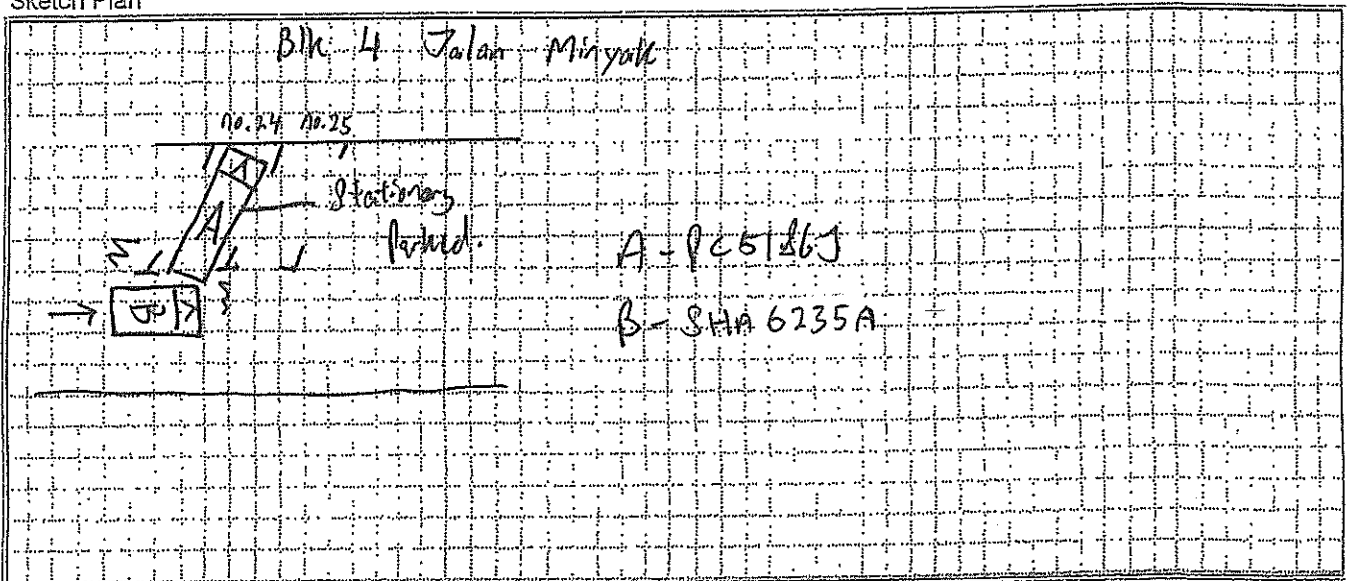 Sketch Plan
Blk 4 Jalan Minyak
no.24 no.25
A
A
Stationery
Parked.
A - PC5186J
B
B - SHA 6235A